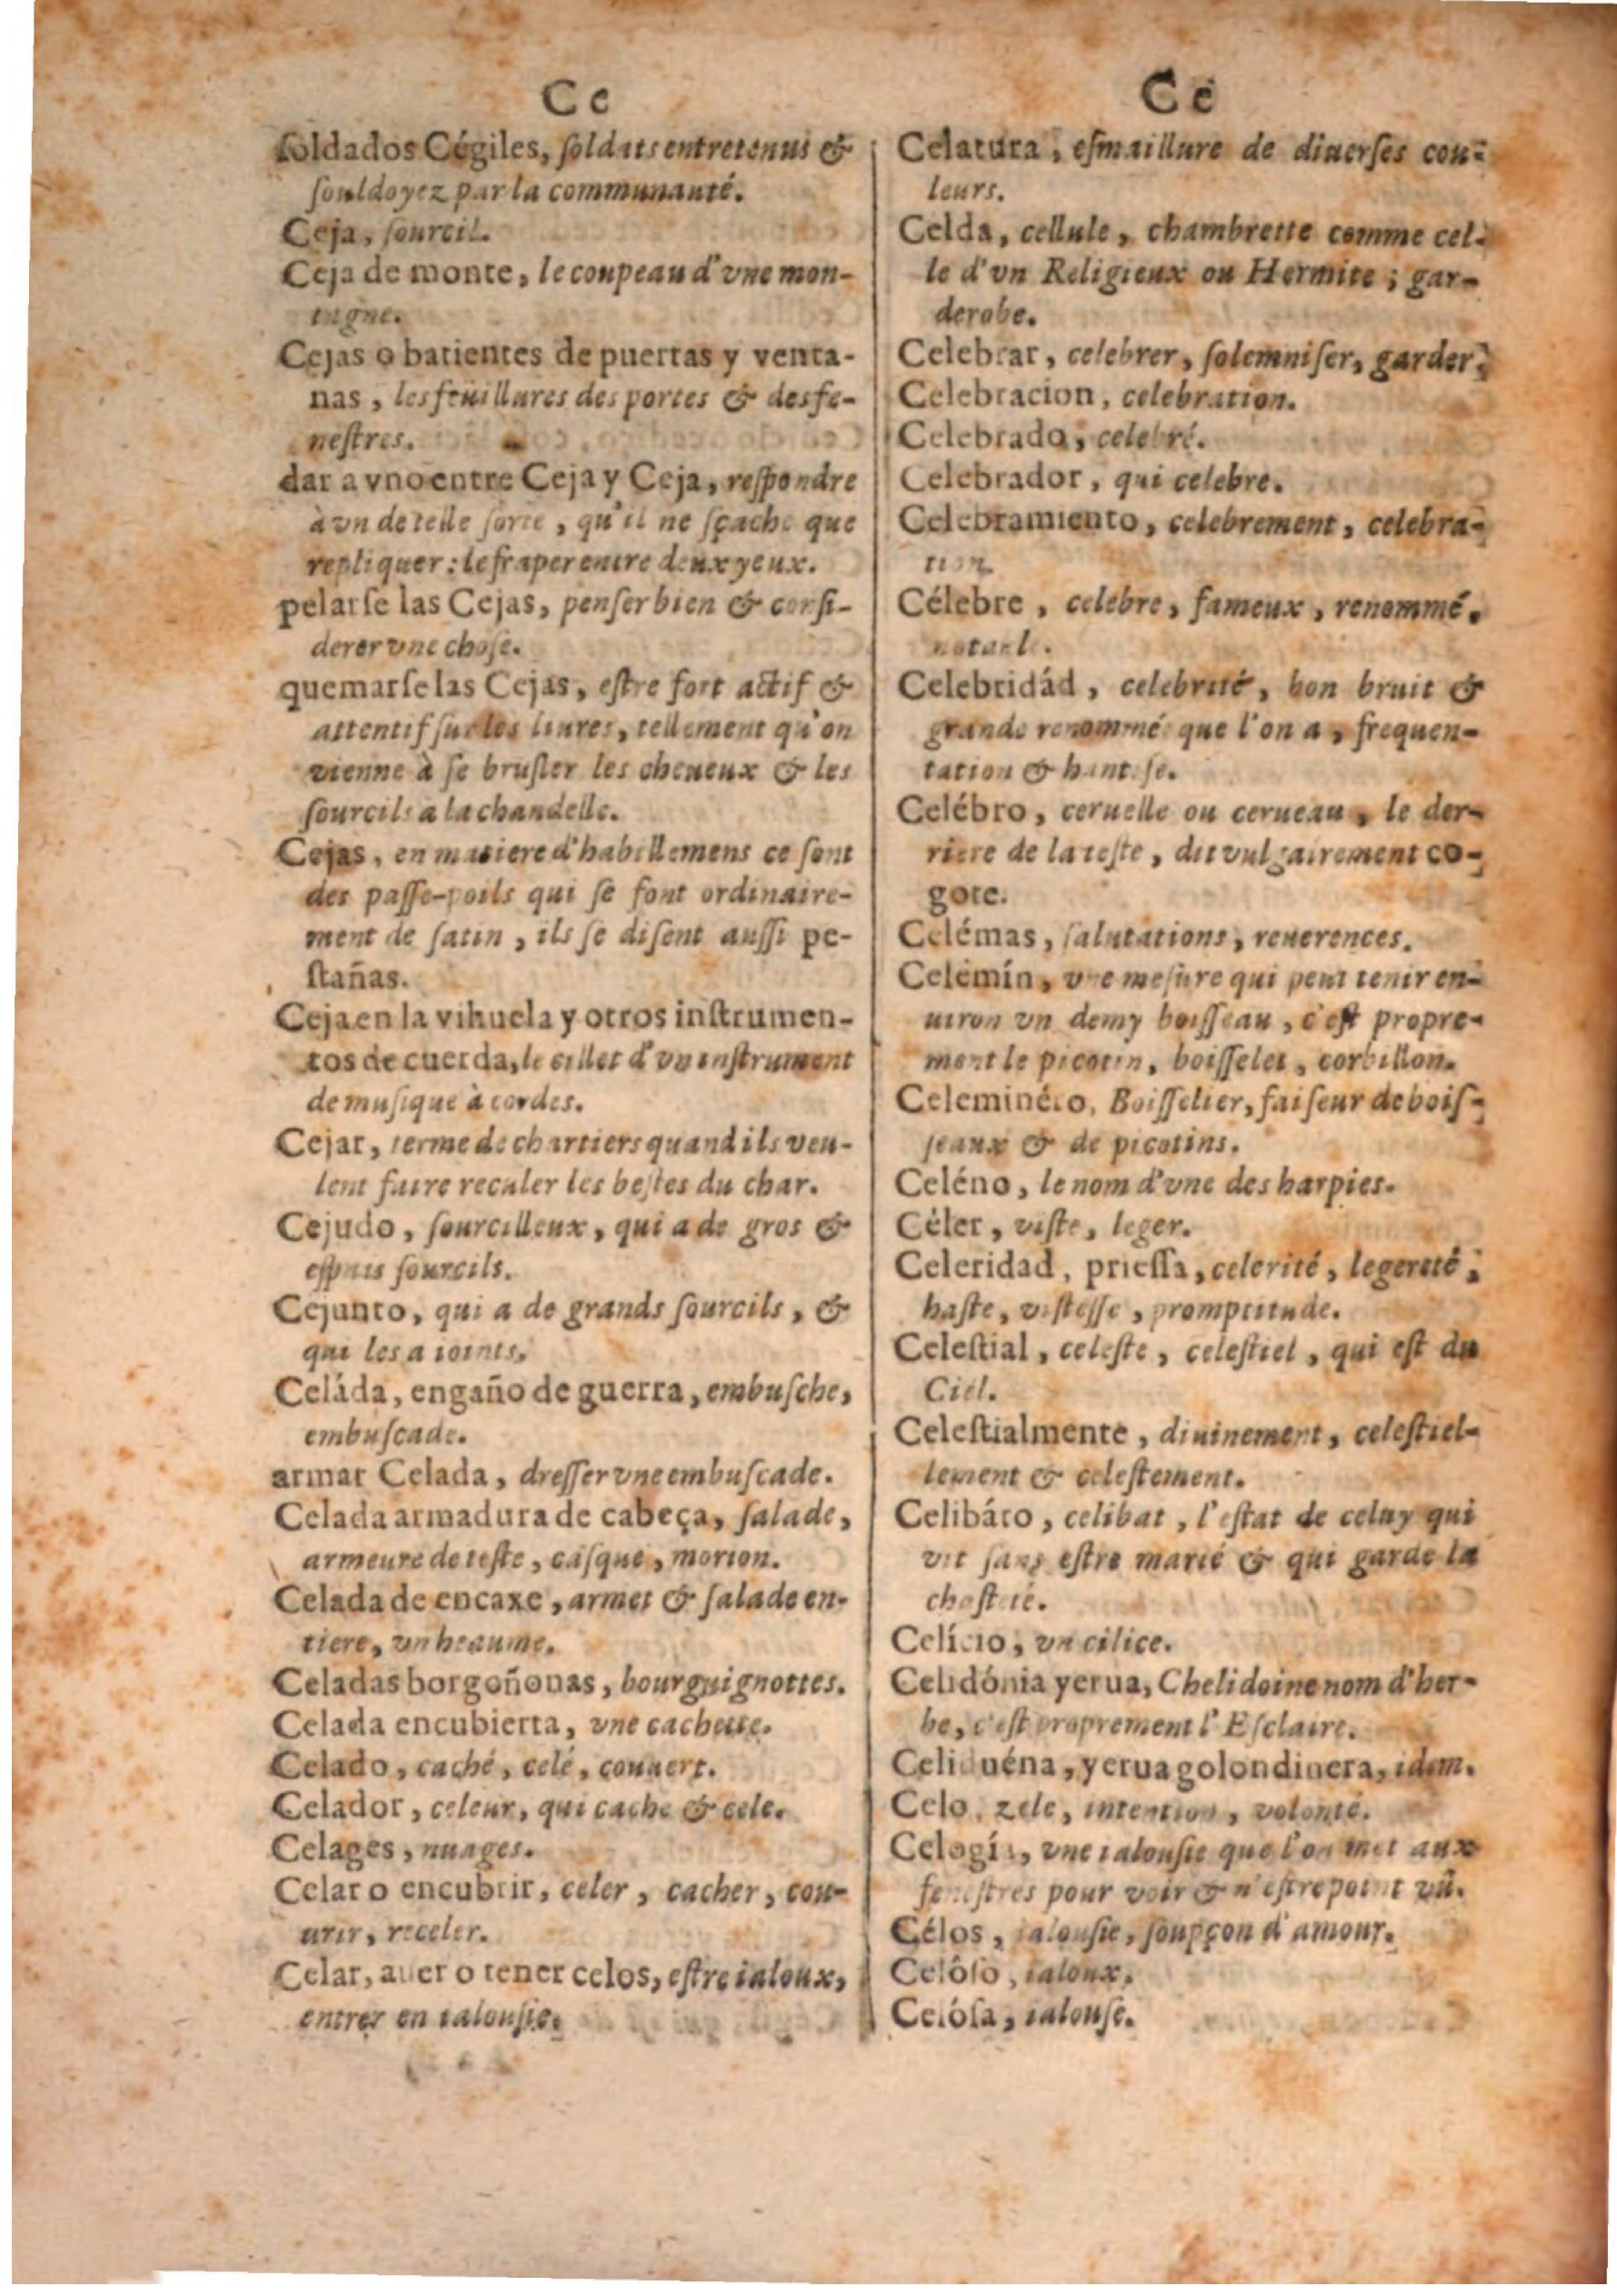 Ce
ſoldados Cégiles, ſoldats entretenus &
ſouldoyez par la communauté.
Ceja, ſourcil.
Ceja de monte, le coupeau d'vne mon-
tagne.
Cejas o batientes de puertas y venta-
nas, les feüillures des portes & des fe-
neſtres.
dar a vno entre Ceja y Ceja, reſpondre
à vn de telle ſorte, qu'il ne ſçache que
repliquer: le fraper entre deux yeux.
pelarſe las Cejas, penſer bien & conſi-
derer vne choſe.
quemarſe las Cejas, eſtre fort actif &
attentif ſur les liures, tellement qu'on
vienne à ſe bruſler les cheueux & les
ſourcils a la chandelle.
Cejas, en matiere d'habillemens ce ſont
des paſſe-poils qui ſe font ordinaire-
ment de ſatin, ils ſe diſent auſſi pe-
ſtañas.
Ceja en la vihuela y otros inſtrumen-
tos de cuerda, le sillet d'vn inſtrument
de muſique à cordes.
Cejar, terme de chartiers quand ils veu-
lent faire reculer les beſtes du char.
Cejudo, ſourcilleux, qui a de gros &
eſpais ſourcils.
Cejunto, qui a de grands ſourcils, &
qui les a ioints.
Celáda, engaño de guerra, embuſche,
embuſcade.
armar Celada, dreſſer vne embuſcade.
Celada armadura de cabeça, ſalade,
armeure de teſte, caſque, morion.
Celada de encaxe, armet & ſalade en-
tiere, vn heaume.
Celadas borgoñonas, bourguignottes.
Celada encubierta, vne cachette.
Celado, caché, celé, couuert.
Celador, celeur, qui cache & cele.
Celages, nuages.
Celar o encubrir, celer, cacher, cou-
urir, receler.
Celar, auer o tener celos, eſtre ialoux,
entrer en ialouſie.
Ce
Celatura, eſmaillure de diuerſes cou-
leurs.
Celda, cellule, chambrette comme cel-
le d'vn Religieux ou Hermite; gar-
derobe.
Celebrar, celebrer, ſolemniſer, garder.
Celebracion, celebration.
Celebrado, celebré.
Celebrador, qui celebre.
Celebramiento, celebrement, celebra-
tion.
Célebre, celebre, fameux, renommé,
notable.
Celebridád, celebrité, bon bruit &
grande renommé que l'on a, frequen-
tation & hantiſe.
Celébro, ceruelle ou cerueau, le der-
riere de la teſte, dit vulgairement co-
gote.
Celémas, ſalutations, reuerences.
Celemín, vne meſure qui peut tenir en-
uiron vn demy boiſſeau, c'eſt propre-
ment le picotin, boiſſelet, corbillon.
Celeminéro, Boiſſelier, faiſeur de boiſ-
ſeaux & de picotins.
Celéno, le nom d'vne des harpies.
Céler, viſte, leger.
Celeridad, prieſſa, celerité, legereté,
haſte, viſteſſe, promptitude.
Celeſtial, celeſte, celeſtiel, qui eſt du
Ciel.
Celeſtialmente, diuinement, celeſtiel-
lement & celeſtement.
Celibáto, celibat, l'eſtat de celuy qui
vit ſans eſtre marié & qui garde la
chaſteté.
Celício, vn cilice.
Celidónia yerua, Chelidoine nom d'her-
be, c'eſt proprement l'Eſclaire.
Celiduéna, yerua golondinera, idem.
Celo, zele, intention, volonté.
Celogía, vne ialouſie que l'on met aux
feneſtres pour voir & n'eſtre point vû.
Célos, ialouſie, ſoupçon d'amour.
Celóſo, ialoux.
Celóſa, ialouſe.